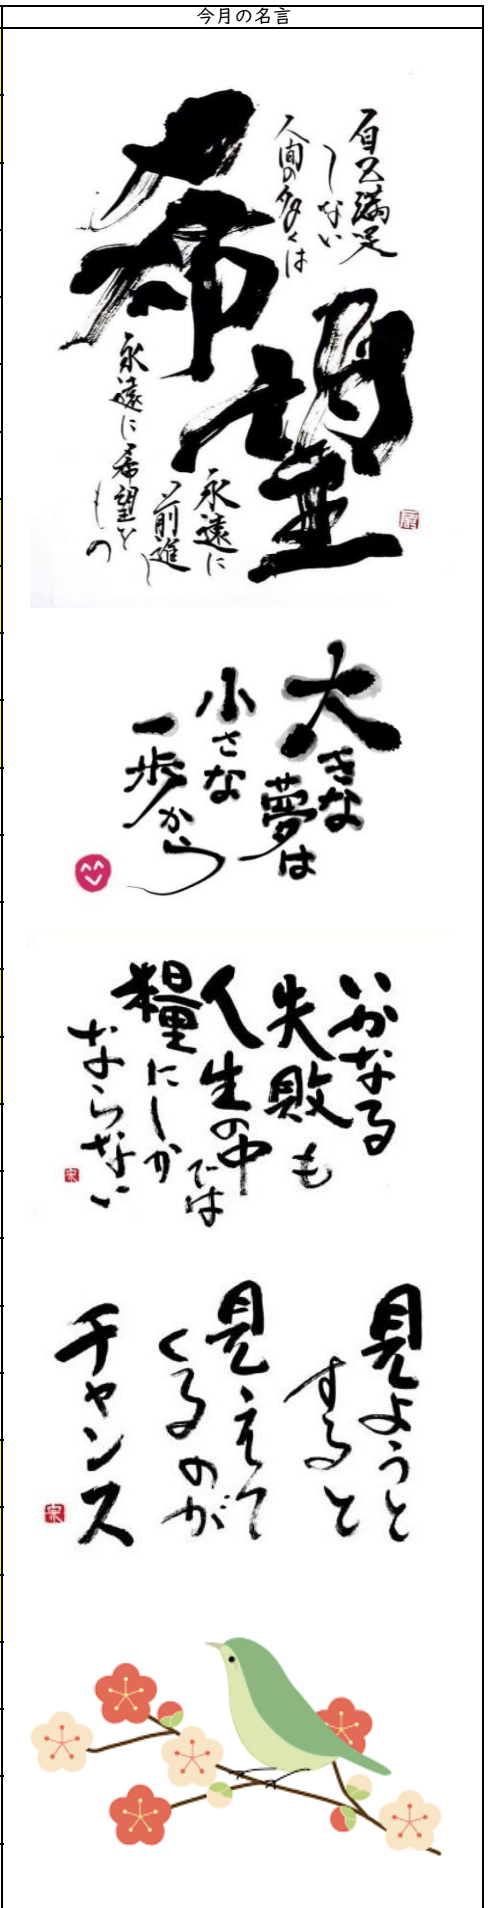 今月の名言
希望
自己満足
しない
人間の多くは
永遠に
前進し
永遠に希望を
もの
大きな
夢は
小さな
一歩から
いかなる
失敗も
人生の中
では
糧にしか
ならない
見ようと
すると
見えて
くるのが
チャンス